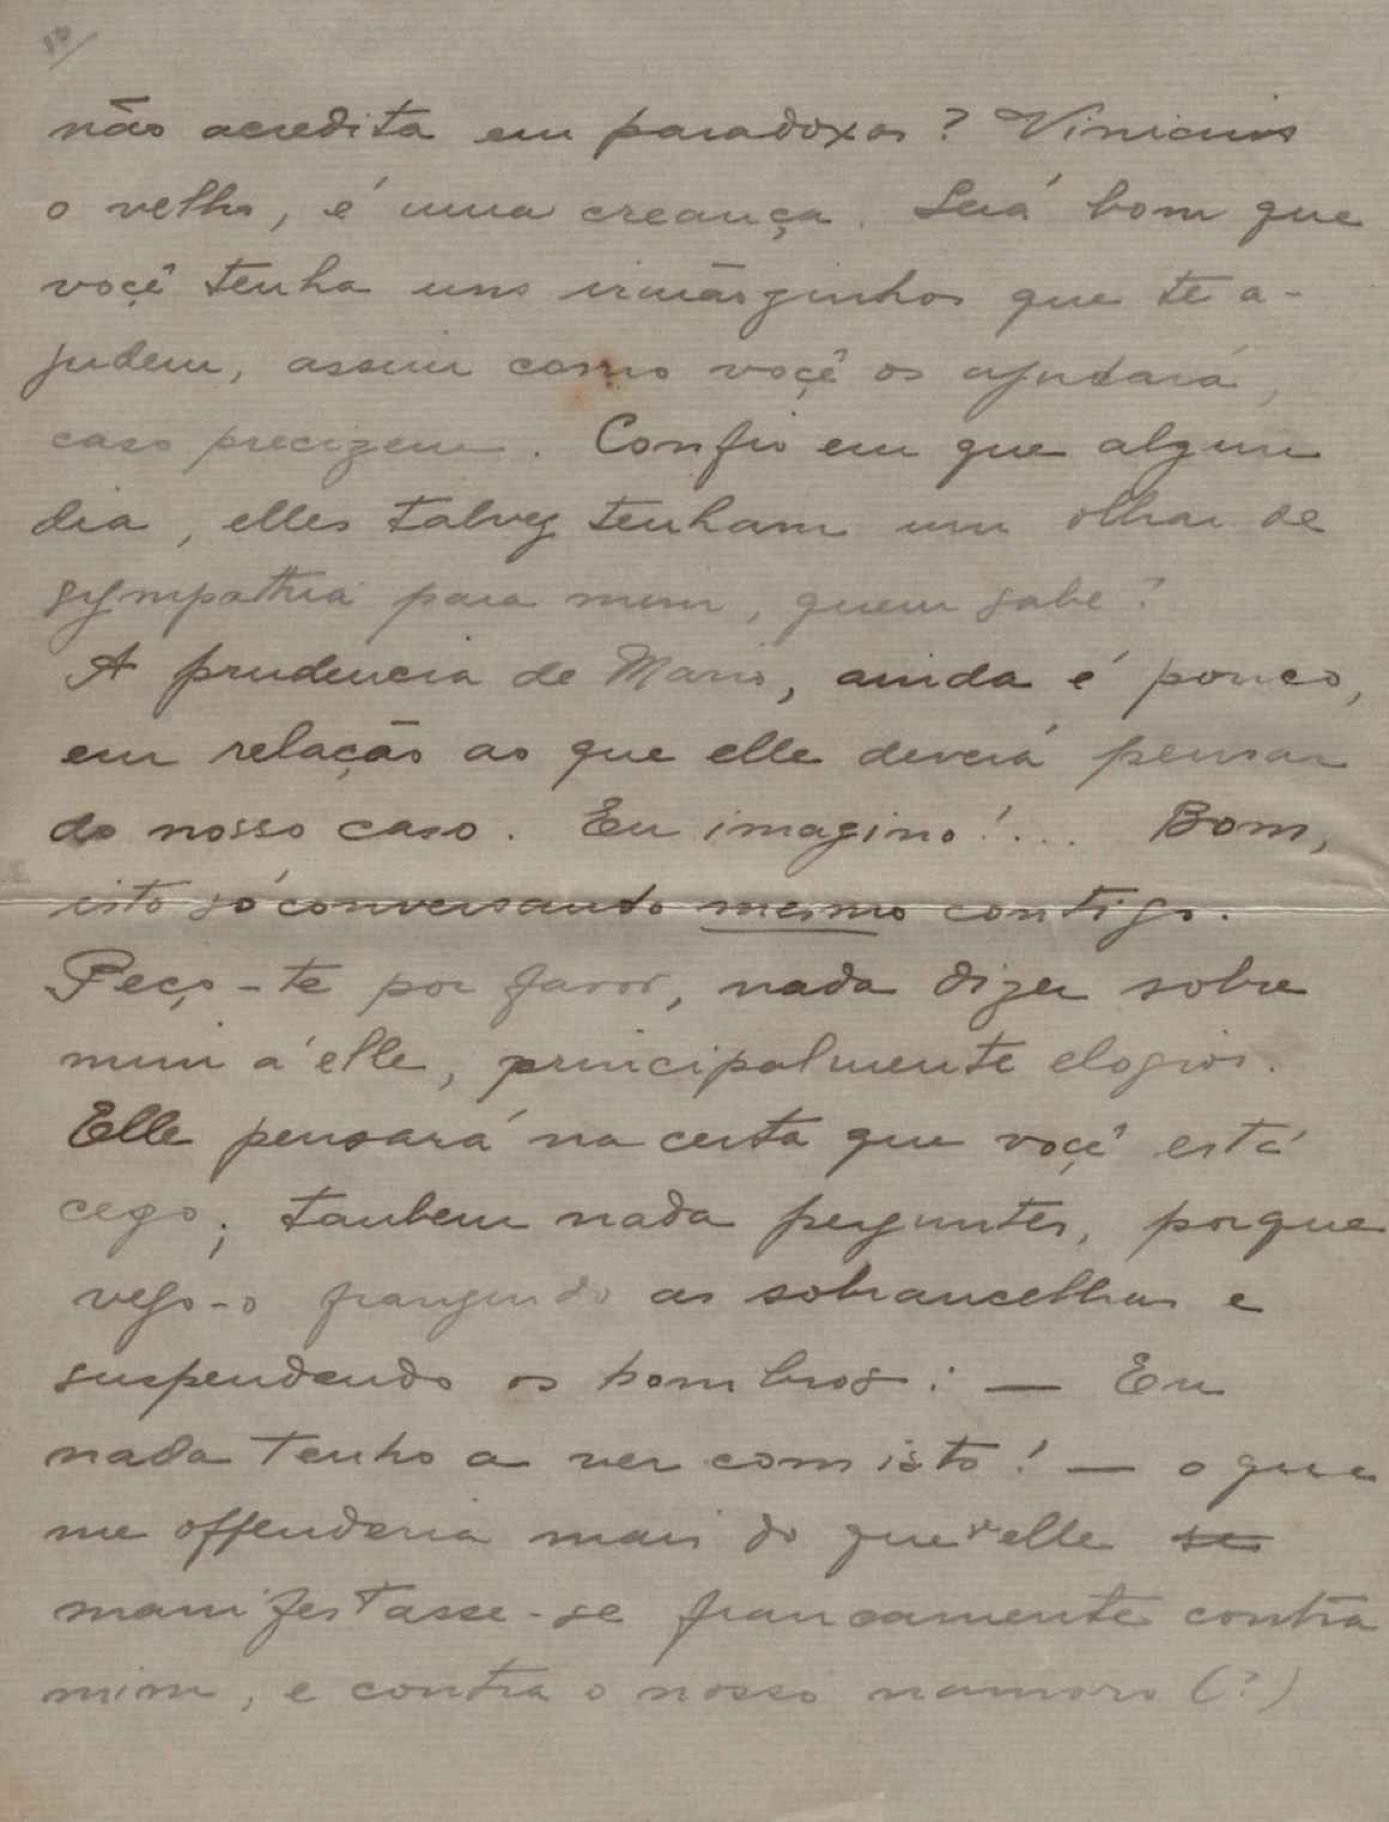 10/
não acredita em paradoxos? Vinicius
o velho, é uma creança. Será bom que
voçê tenha uns irmãosinhos que te a-
judem, assim como voçê os ajudará,
caso precizem. Confio em que algum
dia, elles talvez tenham um olhar de
sympathia para mim, quem sabe?
A prudencia de Mario, ainda é pouco,
em relação ao que elle deverá pensar
do nosso caso. Eu imagino!... Bom,
isto só conversando mesmo contigo.
Peço-te por favor, nada dizer sobre
mim á elle, principalmente elogios.
Elle pensará na certa que voçê está
cego; tambem nada perguntes, porque
vejo-o frangindo as sobrancelhas e
suspendendo os hombros: — Eu
nada tenho a ver com isto! — o que
me offenderia mais do que elle se
manifestasse-se francamente contra
mim, e contra o nosso namoro (?)